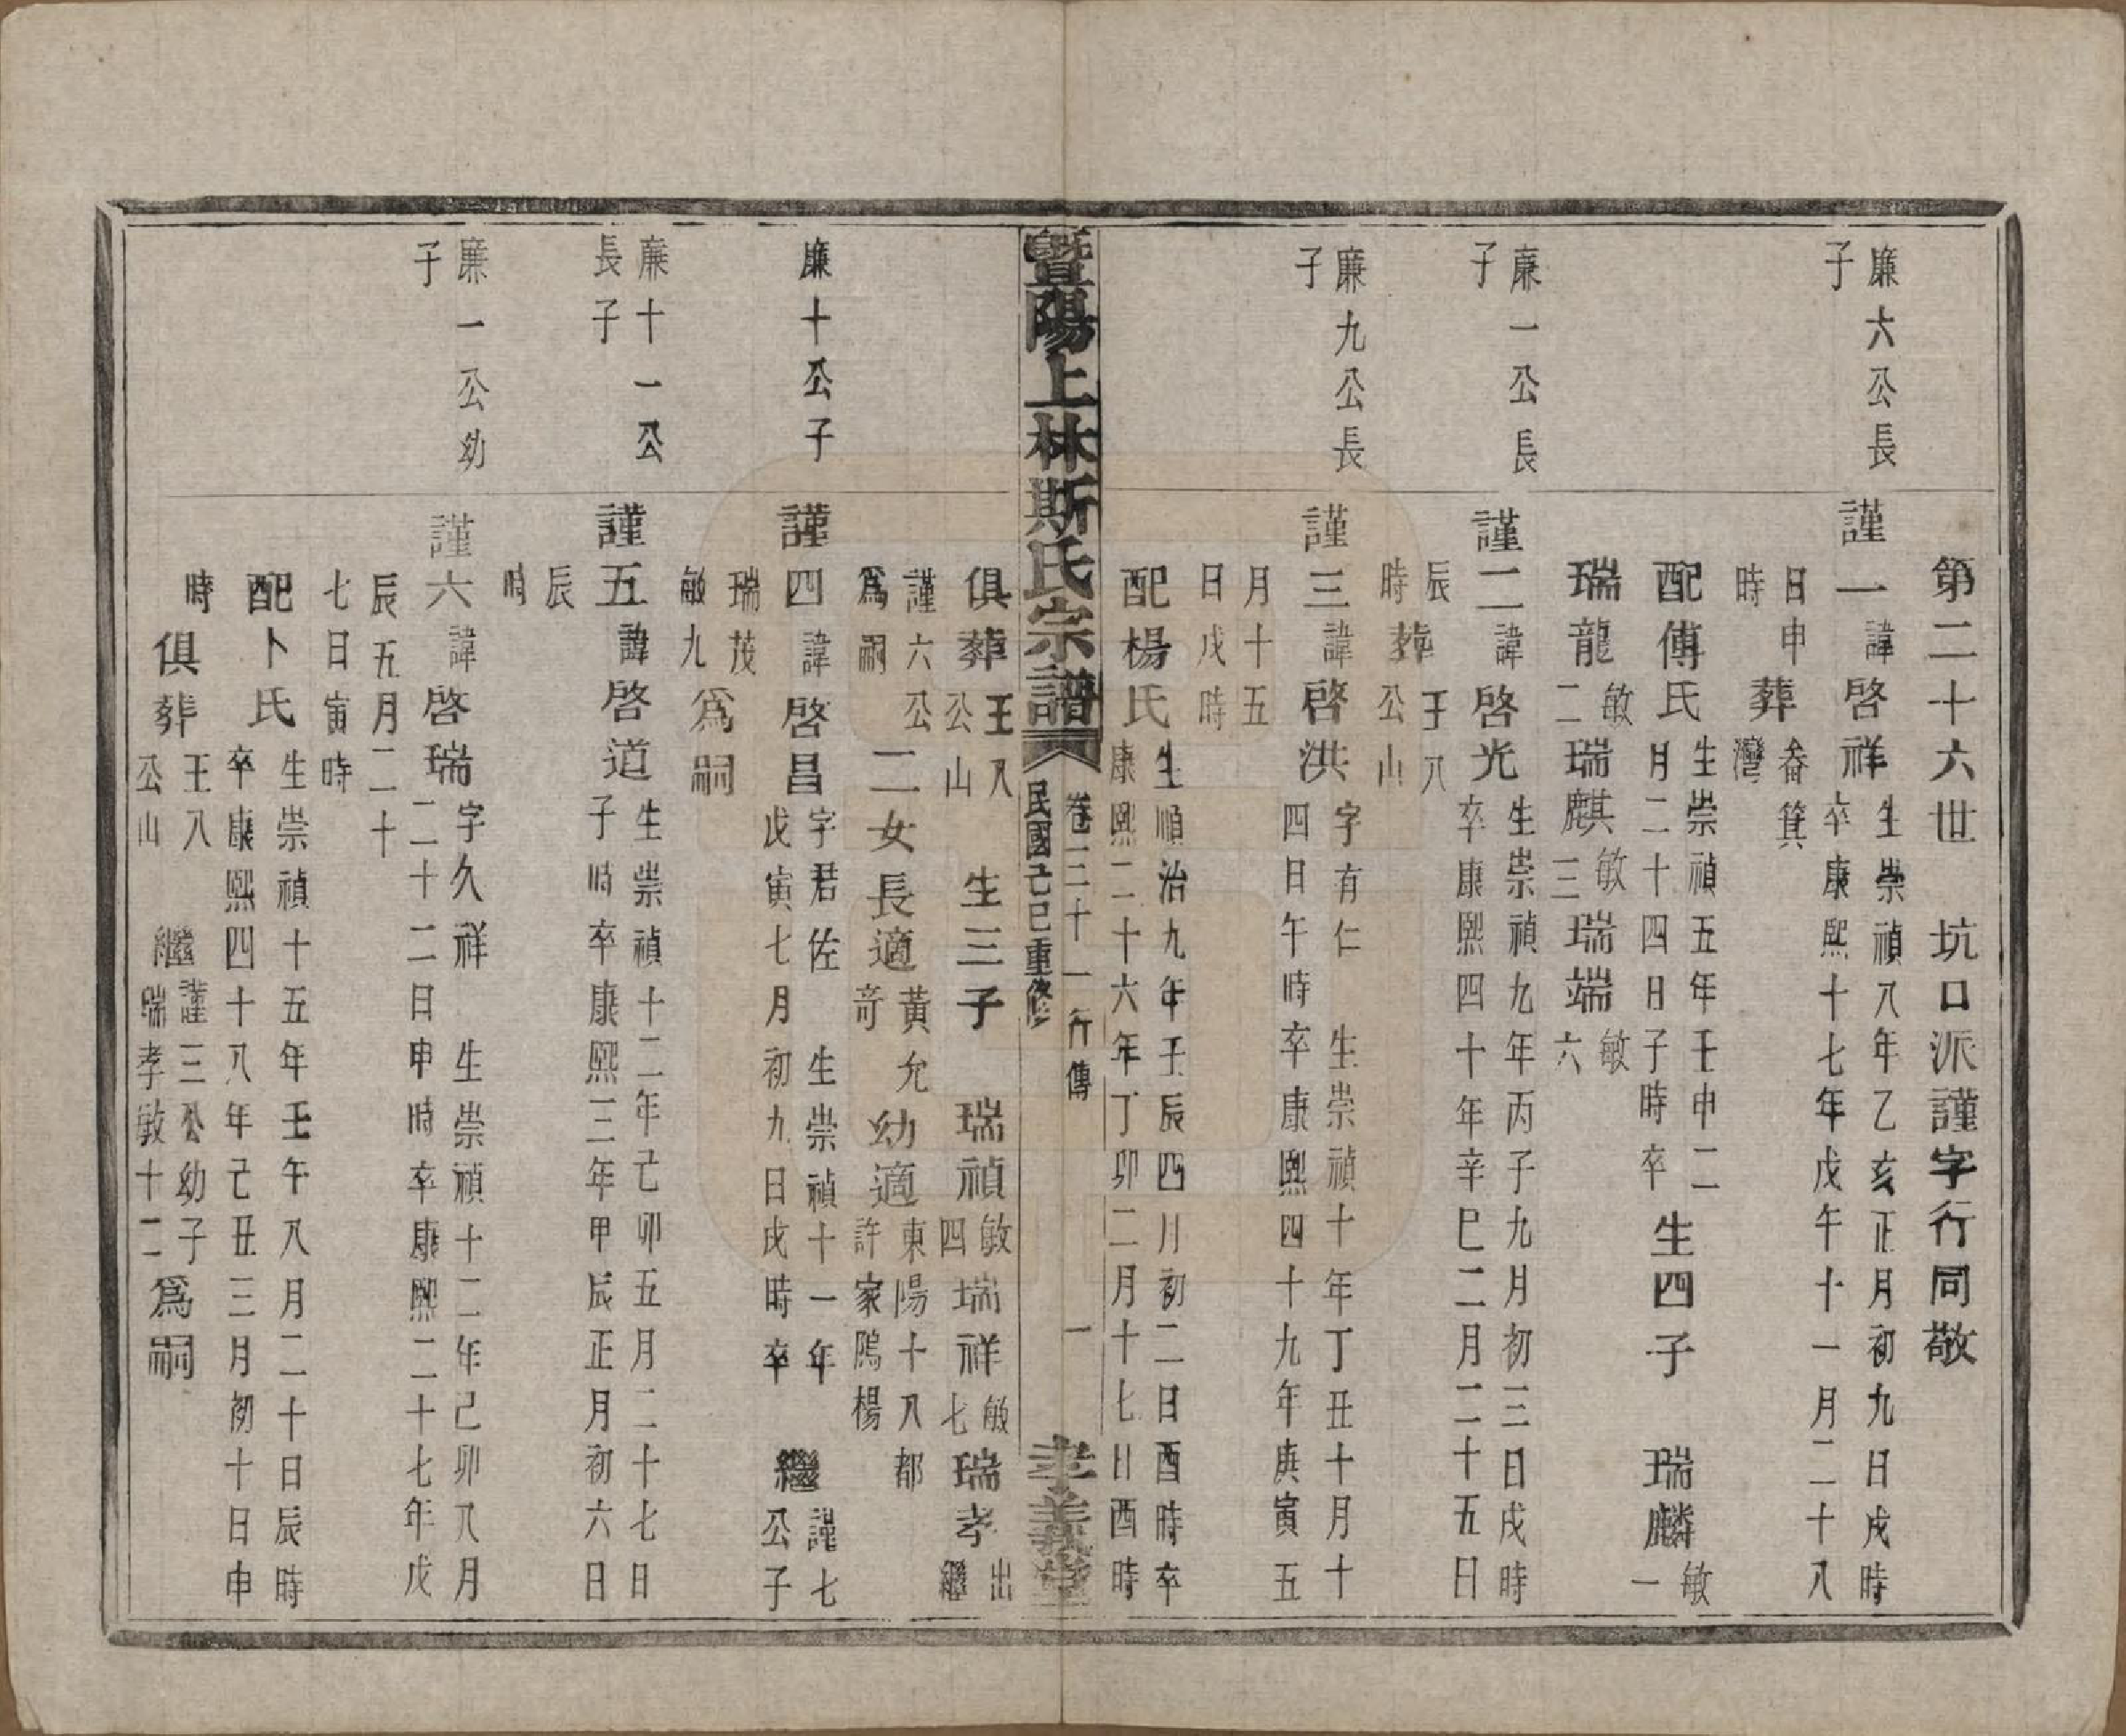 第二十六世 坑口派謹字行同敬
廉六公長子
謹一諱啓祥 生崇禎八年乙亥正月初九日戌時卒康熙十七年戊午十一月二十八日申時 葬畚箕灣
配傅氏 生崇禎五年壬申二月二十四日子時卒 生四子 瑞麟敏一
瑞龍敏二瑞麒敏三瑞端敏六
廉一公長子
謹二諱啓光 生崇禎九年丙子九月初三日戌時卒康熙四十年辛巳二月二十五日辰時 葬王八公山
廉九公長子
謹三諱啓洪 字有仁 生崇禎十年丁丑十月十四日午時卒康熙四十九年庚寅五月十五日戌時
配楊氏 生順治九年壬辰四月初二日酉時卒康熙二十六年丁卯二月十七日酉時
暨陽上林斯氏宗譜 卷三十一行傳 一 民國己巳重修 孝義堂
俱葬王八公山 生三子 瑞禎敏四瑞祥敏七瑞孝出繼
謹六公爲嗣 二女長適黃允奇幼適東陽十八都許家隖楊
廉十公子
謹四諱啓昌 字君佐 生崇禎十一年戊寅七月初九日戌時卒 繼謹七公子
瑞茂敏九爲嗣
廉十一公長子
謹五諱啓道 生崇禎十二年己卯五月二十七日子時卒康熙三年甲辰正月初六日辰時
廉一公幼子
謹六諱啓瑞 字久祥 生崇禎十二年己卯八月二十二日申時卒康熙二十七年戊辰五月二十七日寅時
配卜氏 生崇禎十五年壬午八月二十日辰時卒康熙四十八年己丑三月初十日申時
俱葬王八公山 繼謹三公幼子瑞孝敏十二爲嗣